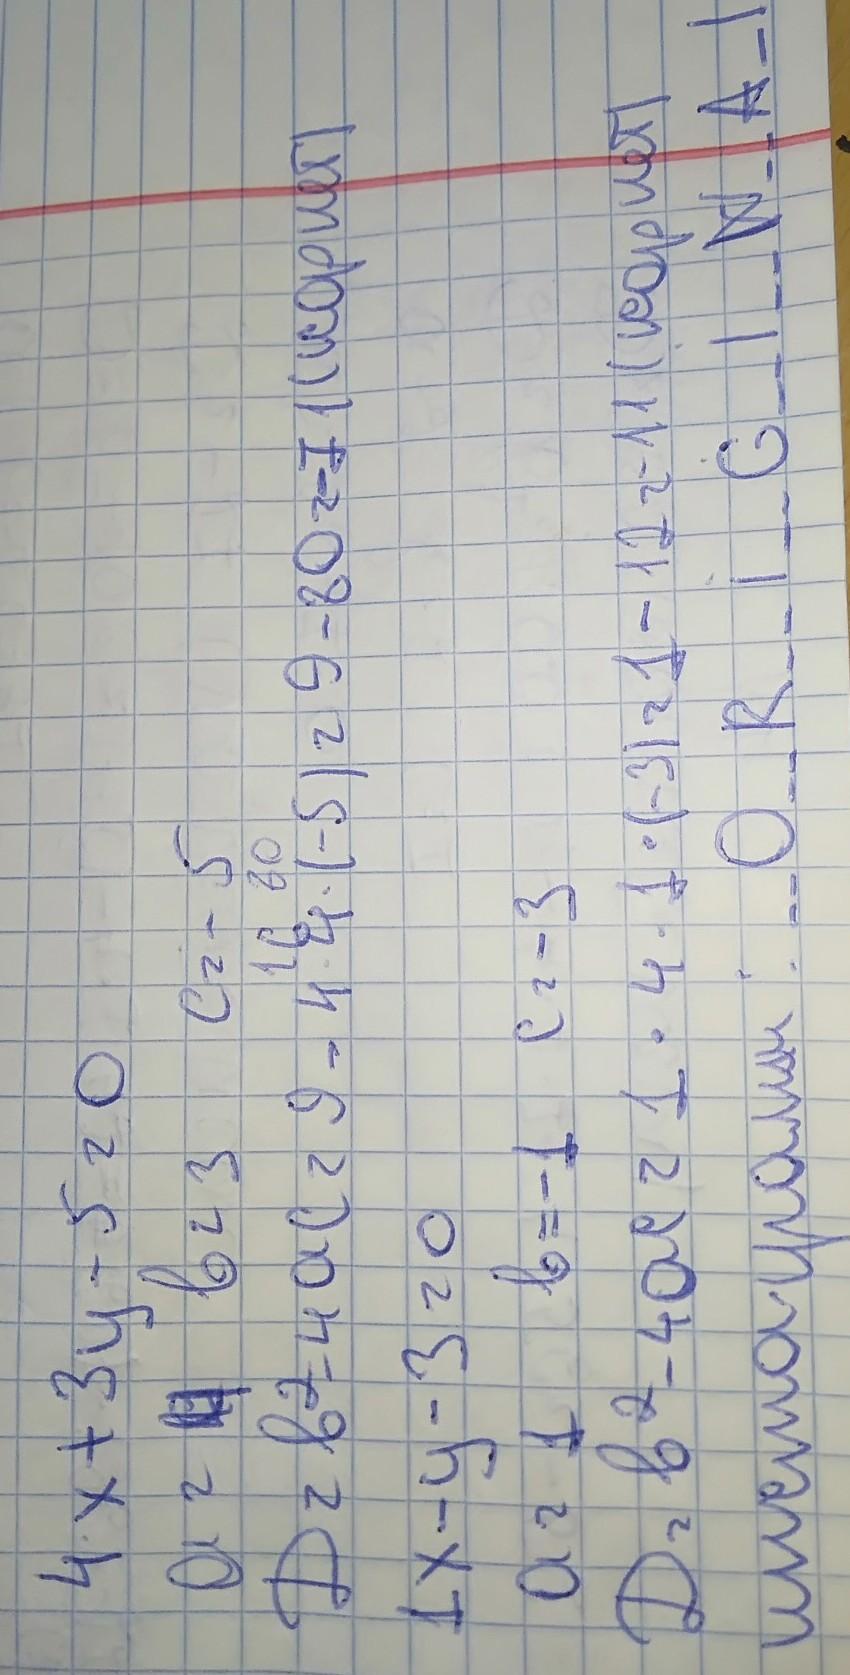 4x+3y-5=0
a=4 b=3 c=-5
16 80
D=b²-4ac=9-4·4·(-5)=9-80=-71(кор нет)
1x-y-3=0
a=1 b=-1 c=-3
D=b²-4ac=1·4·1·(-3)=1-12=-11(кор нет)
инстаграм: __O__R__I__G__I__N__A__l